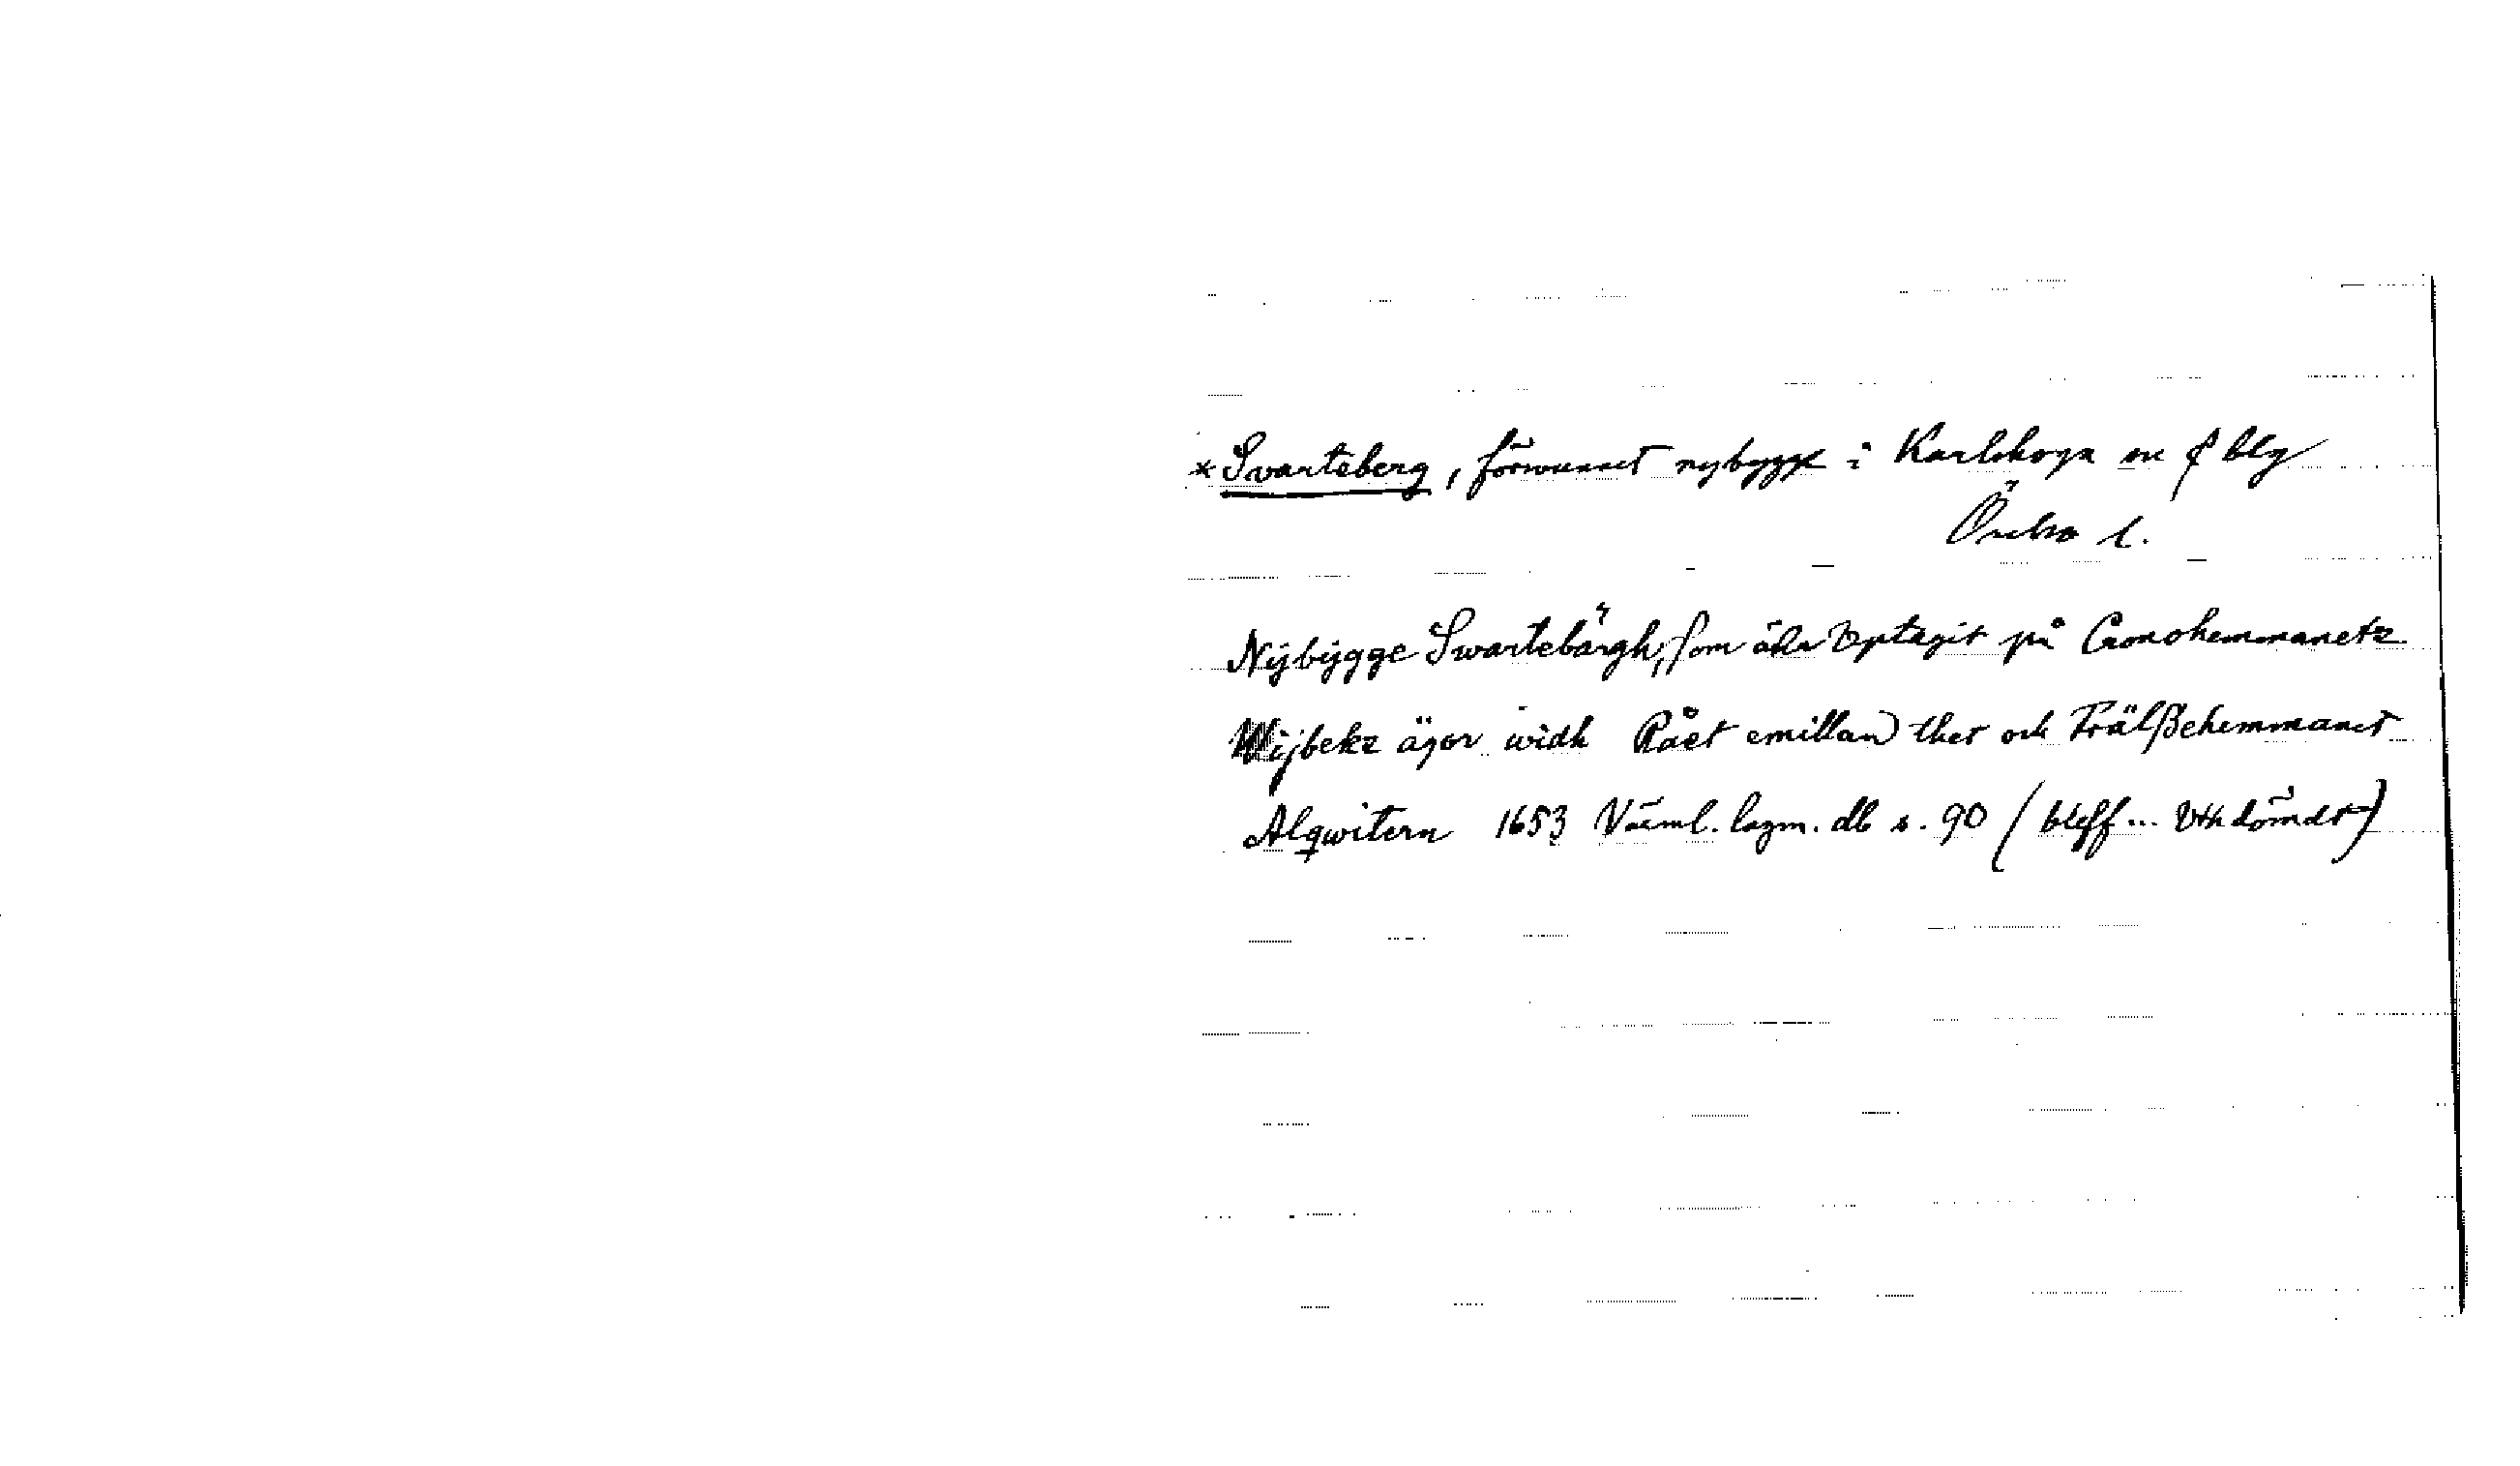 * Svarteberg, försvunnet nybygge i Karlskoga sn o blg
Örebro l.
Nÿbÿgge Swartebärgh, som ähr Vptagit på Cronohemmanetz
Wijbekz ägor widh Rået emillan thet och FrälSßehemmanet
Alqwitern 1653 Värml. lagm. db s. 90 (bleff... Vthdömdt)